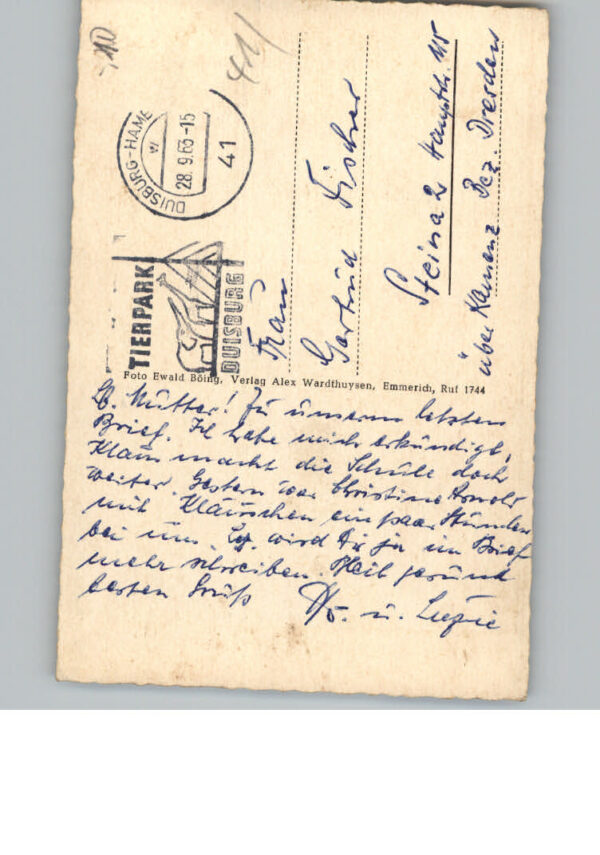 41
DUISBURG-HAM
W
28.9.63-15
41
TIERPARK
DUISBURG
Frau
Gertrud Fischer
Steina 2 Hauptstr. 115
über Kamenz Bez. Dresden
Foto Ewald Böing, Verlag Alex Wardthuysen, Emmerich, Ruf 1744
Lb. Mutter! Zu unserm letzten
Brief. Ich habe mich erkündigt,
Klaus macht die Schule doch
weiter. Gestern war Christine Arnold
mit Kläuschen ein paar Stunden
bei uns. wird Dir ja im Brief
mehr schreiben. Bleib gesund
besten Gruß u.